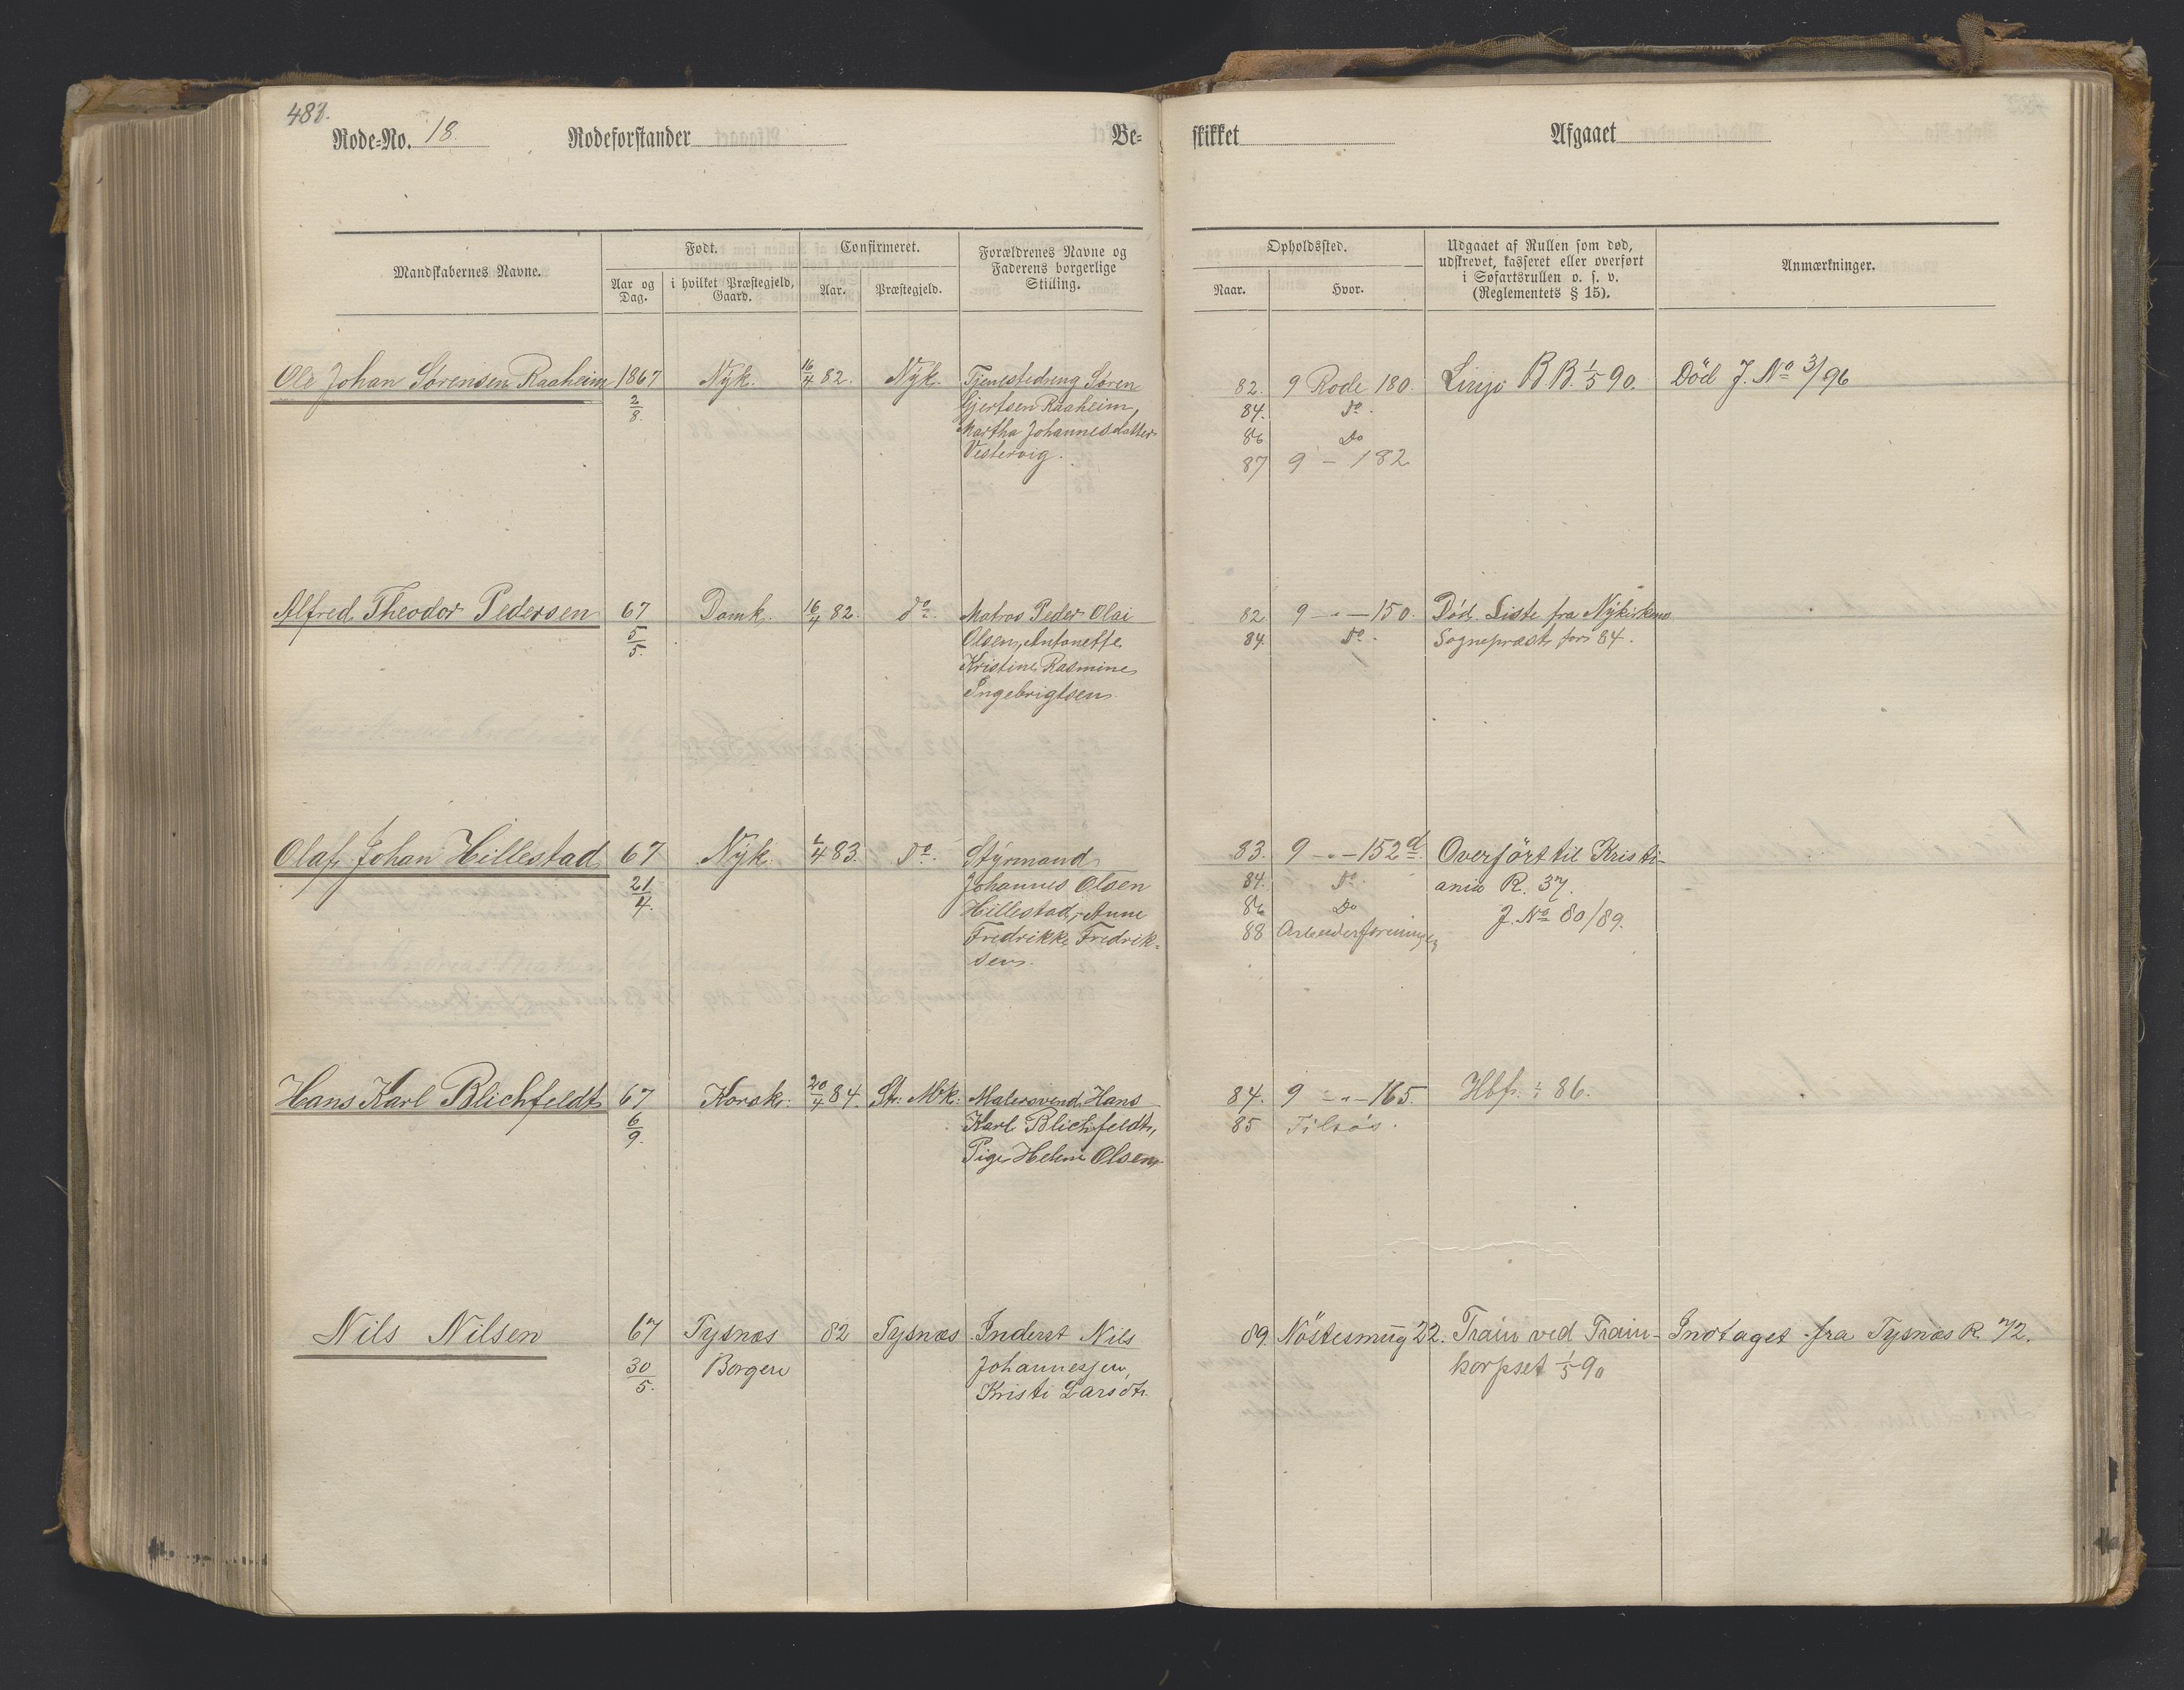 Rode=No. 18. Rodeforstander Be= skikket Afgaaet
Mandskabernes Navne. Født. Confirmeret. Forældrenes Navne og Faderens borgerlige Stilling. Opholdssted. Udgaaet af Rullen som død, udskrevet, kasseret eller overført i Søfartsrullen o. s. v. (Reglementets § 15). Anmærkninger.
Aar og Dag. i hvilket Præstegjeld, Gaard. Aar. Præstegjeld. Naar. Hvor.
Ole Johan Sørensen Raaheim 1867 Nyk. 16/4 82. Nyk. Tjenestedreng Søren 82. 9 Rode 180. Linje B B. 1/5 90. Död J. No 3/96
2/8. Gjertsen Raaheim, 84. Do.
Martha Johannesdatter 86 Do
Vestervig. 87 9 - 182
Alfred Theodor Pedersen 67 Domk. 16/4 82. do. Matros Peder Olai 82 9 -"- 150. Död. Liste fra Nykirkens
5/5. Olsen, Antonette 84. Do. Sognepræst for 84.
Kristine Rasmine
Ingebrigtsen
Olaf Johan Hillestad 67 Nyk. 83. Do. Styrmand 83. 9 -"- 152 d. Overfört til Kristi-
21/4. Johannes Olsen 84. Do. ania R. 37.
Hillestad, Anne 86 Do J. No 80/89.
Fredrikke Fredrik= 88 Arbeiderforeningen
sen.
Hans Karl Blichfeldt 67 Korsk. 20/4 84. St: Mk: Malersvend Hans 84. 9 -"- 165. Hbf. 86.
6/9. Karl Blichfeldt, 85 Tilsös.
Pige Helene Olsen
Nils Nilsen 67 Tysnæs 82 Tysnæs Inderst Nils 89. Nöstesmug 22. Train ved Train- Indtaget fra Tysnæs R. 72.
30/5. Borgen Johannessen, korpset 1/5 90
Kristi Larsdtr.